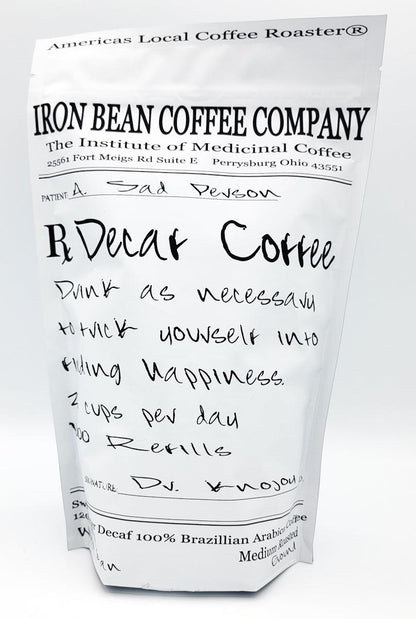 Americas Local Coffee Roaster®
IRON BEAN COFFEE COMPANY
The Institute of Medicinal Coffee
25561 Fort Meigs Rd Suite E Perrysburg Ohio 43551
PATIENT A. Sad Person
Rx Decaf Coffee
Drink as necessary
to trick yourself into
finding happiness.
2 cups per day
00 Refills
SIGNATURE Dr.
Decaf 100% Brazillian Arabica Coffee
Medium Roasted
Ground